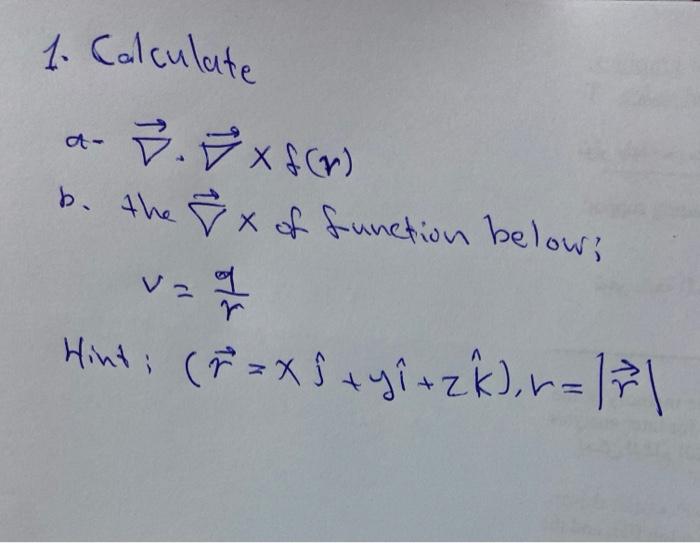 1. Calculate
a- ∇⃗ . ∇⃗ × f(r)
b. the ∇⃗ × of function below;
v = q/r
Hint; (r⃗ = x ĵ + y î + z k̂), r = |r⃗|